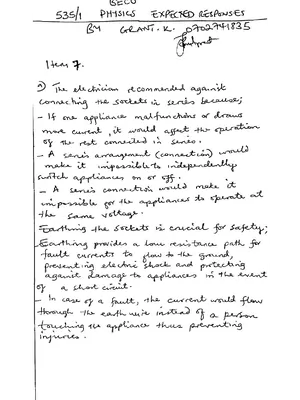 BECO
535/1 PHYSICS EXPECTED RESPONSES
BY GRANT. K. 0702741835
Item 7.
a) The electrician recommended against
connecting the sockets in series because;
- If one appliance malfunctions or draws
more current, it would affect the operation
of the rest connected in series.
- A series arrangement (connection) would
make it impossible to independently
switch appliances on or off.
- A series connection would make it
impossible for the appliances to operate at
the same voltage.
Earthing the sockets is crucial for safety;
Earthing provides a low resistance path for
fault currents to flow to the ground,
preventing electric shock and protecting
against damage to appliances in the event
of a short circuit.
- In case of a fault, the current would flow
through the earth wire instead of a person
touching the appliance thus preventing
injuries.